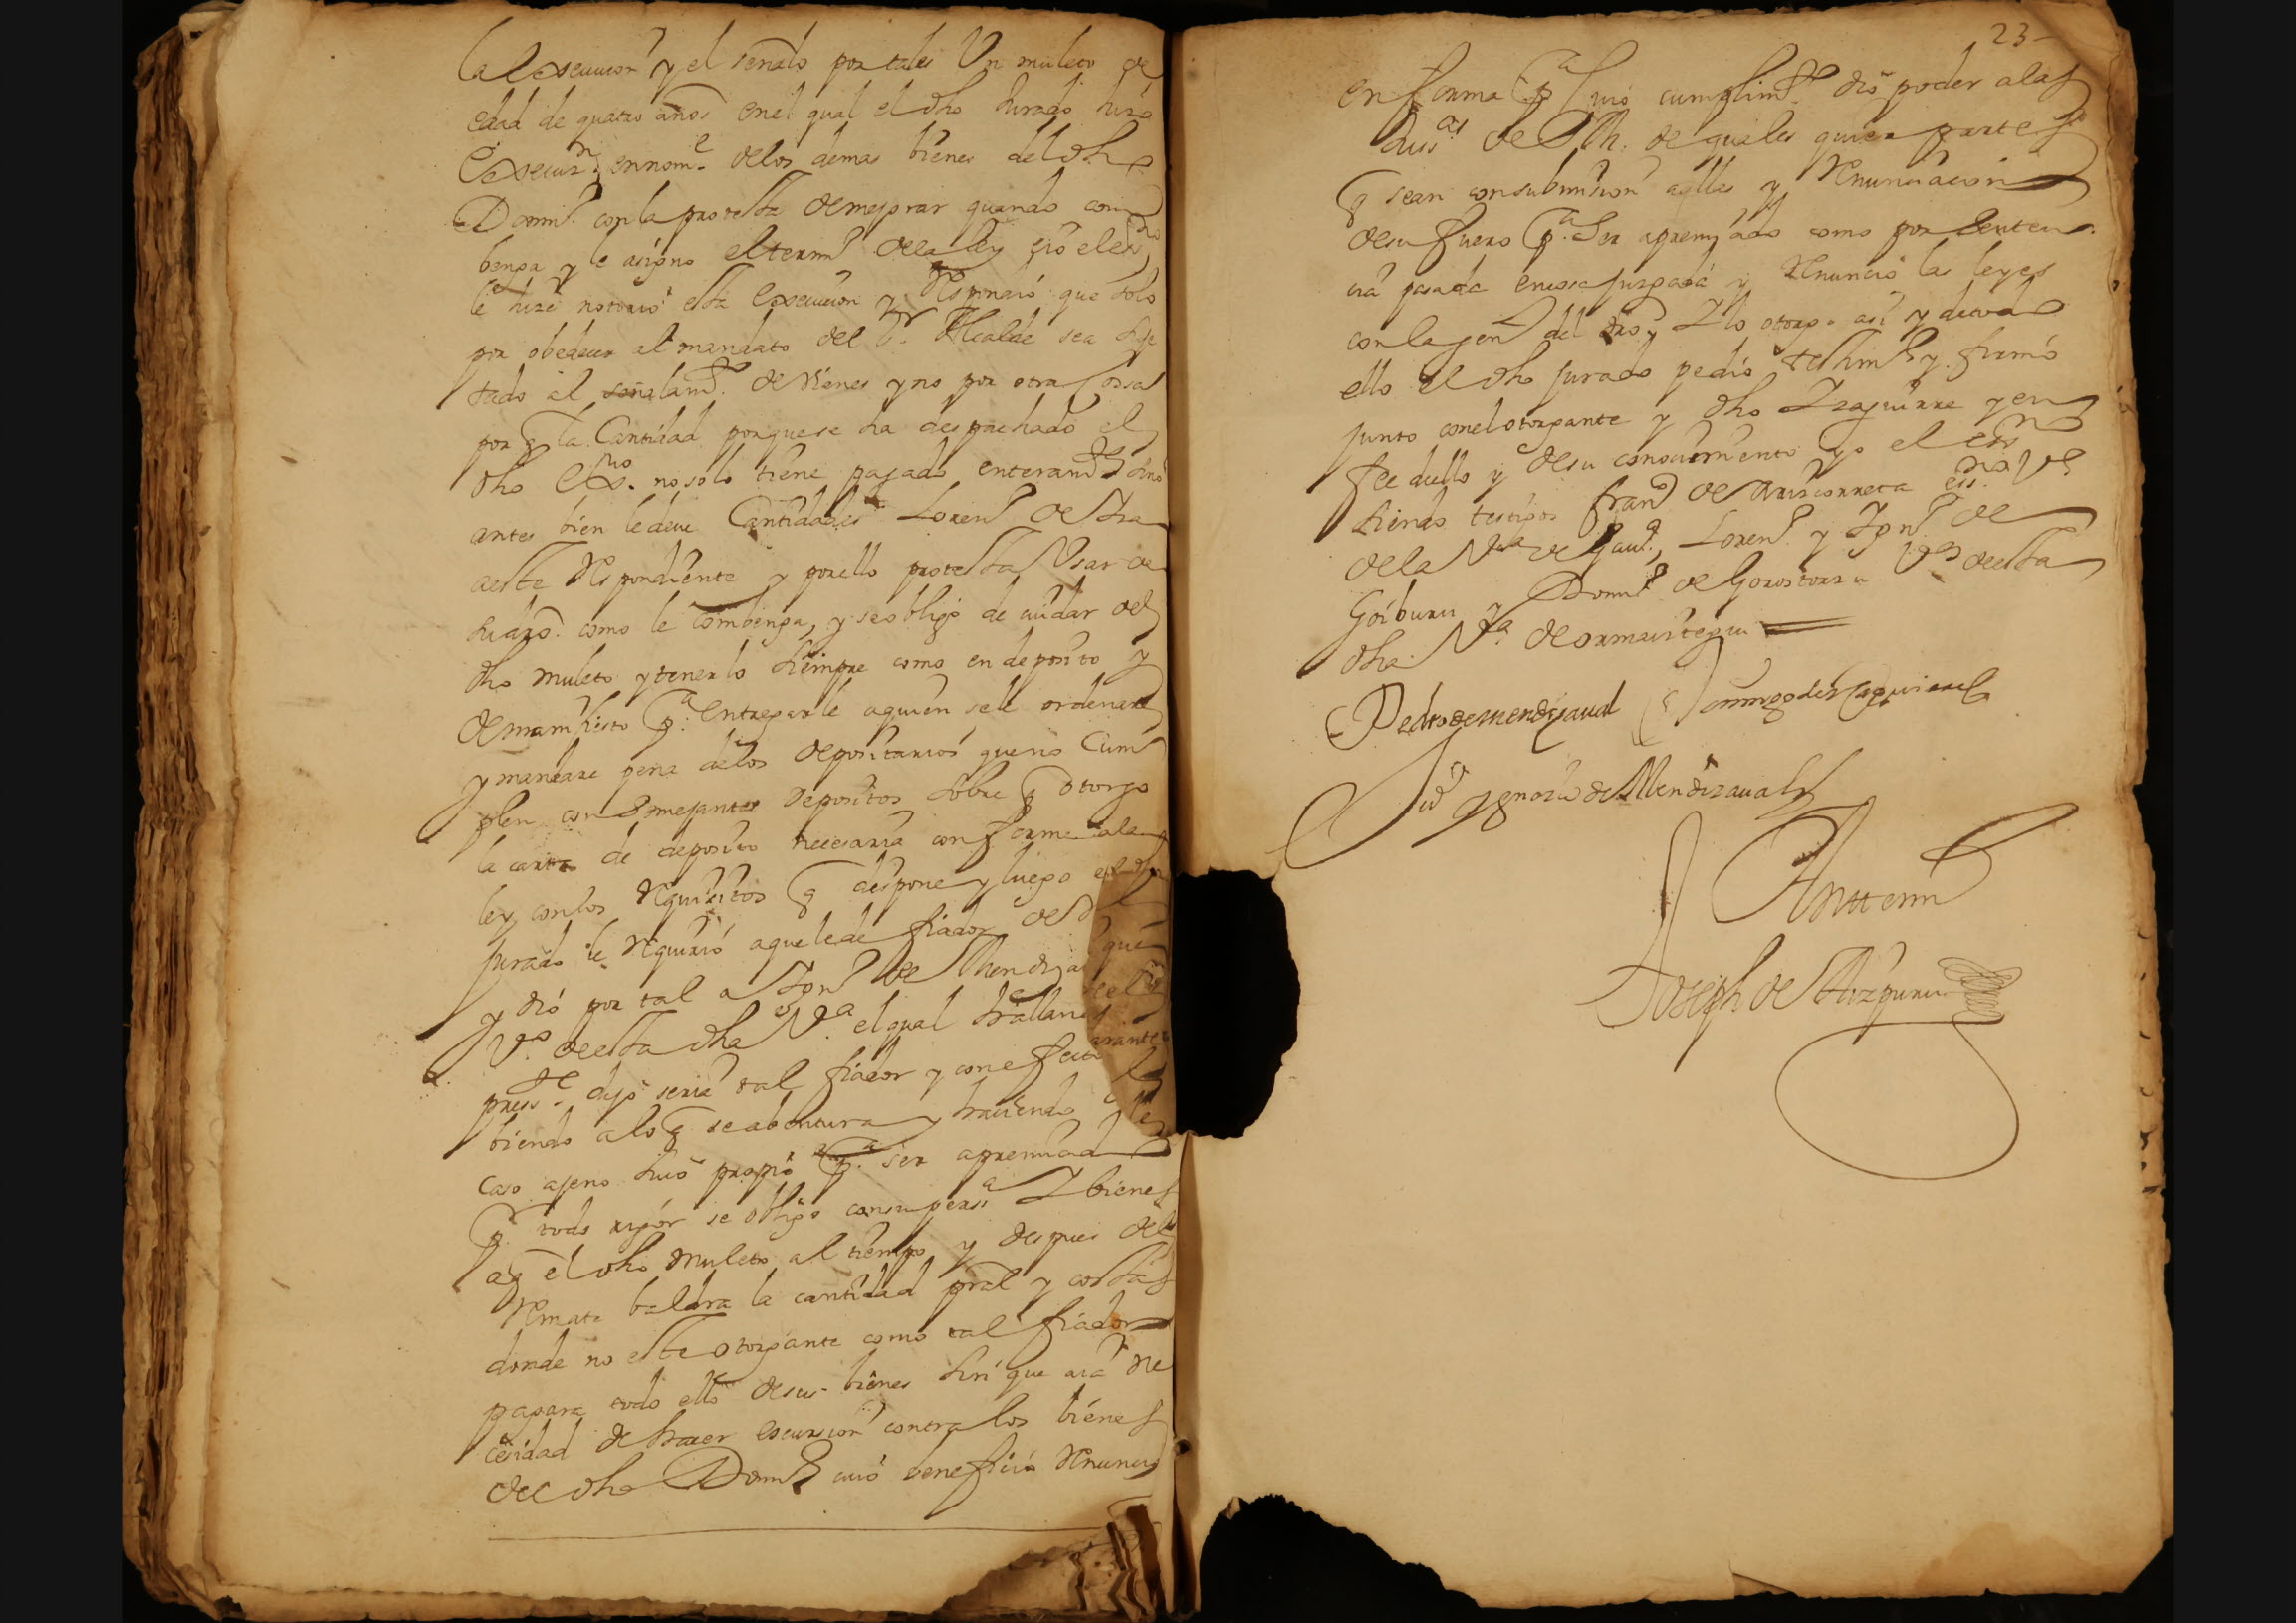 la execucion y el señalo por tales Un muleto de
edad de quatro años en el qual el dho Jurado hizo
execuz.n en nom.e de los demas bienes del dho
Domin.o con la protesta de mejorar quando com
benga y le asigno el termi.o de la ley yo el es.no
le hize notorio esta execucion y Respondio que solo
por obedecer al mandato del S.r Alcalde sea
tado el señalam.to de vienes y no por otra cossa
por q la Cantidad porque se ha despachado el
dho Ex.no no solo tiene pagado enteram.te sino
antes bien le deve Cantidades Loren.o de
a este Respondiente y por ello protesta Usar de
su dro. como le combenga, y se obligo de cuidar del
dho muleto y tenerlo siempre como en deposito y
de manifiesto p.a entregarle a quien se le ordenare
y mandare pena de los depositarios que no Cum
plen con semejantes depositos sobre q otorgo
la carta de deposito necesaria conforme a la
ley con los Requisitos q dispone y luego el dho
Jurado le Requirio a que le de fiador de
y dió por tal a Ign.o de Mendiza
V.o de esta dha V.a el qual hallando
press.te dijo seria tal fiador y con efecto
biendo a lo q se abentura y haciendo
caso ajeno suio propio p.a ser apremiado
p. todo rigor se obligo con su pers.a Y bienes
a q el dho muleto al tiempo y despues del
Remate baldra la cantidad pral y costas
donde no este otorgante como tal fiador
pagara todo ello de sus bienes sin que aia ne
cesidad de hazer escursion contra los bienes
del dho Domin.o cuio beneficio Renuncio
23
en forma p.a cuio cumplim.to dio poder a las
Juss.as de S. M. de quales quier partes
q sean con submision a ellas y Renunciacion
de su fuero p.a ser apremiado como por senten
cia pasada en cosa juzgada y Renuncio las leyes
con la gen.l del dro y Y lo otorgo asi y de todo
ello el dho Jurado pedio testim.o y firmó
junto con el otorgante y dho Yzaguirre y en
fee de ello y de su conocimiento yo el es.no
siendo testigos fran.co de Arriscorreta ess.no V.o
de la V.a de Gav.a, Loren.o y Ign.o de
Goiburu y Domin.o de Gorostorzu V.os de esta
dha V.a de ormaiztegui
Pedro de mendizaual Domingo de Yzaguirre
Ju.o Ygnazio de Mendizaual
Antte mi
Joseph de Aizpuru